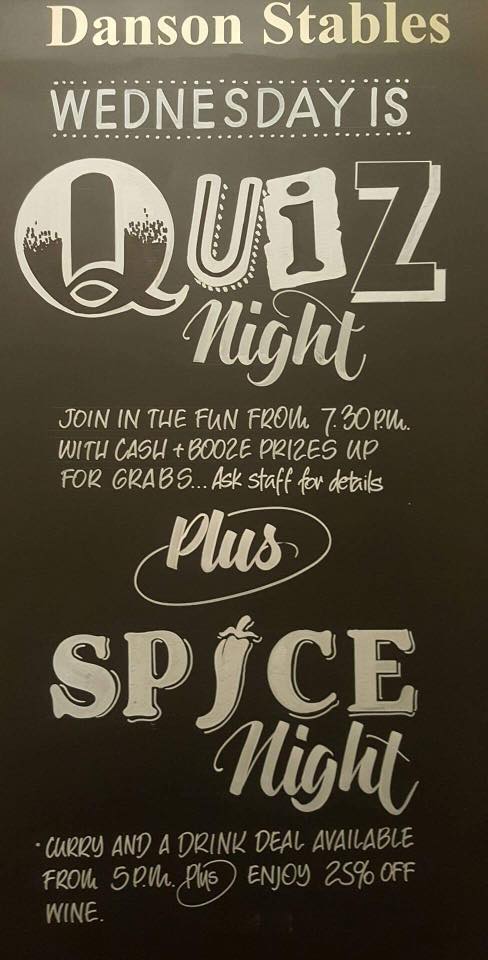 Danson Stables
WEDNESDAY IS
QUiZ
Night
JOIN IN THE FUN FROM 7.30 P.M.
WITH CASH + BOOZE PRIZES UP
FOR GRABS... Ask staff for details
Plus
SPICE
Night
• CURRY AND A DRINK DEAL AVAILABLE
FROM 5 P.M. Plus ENJOY 25% OFF
WINE.